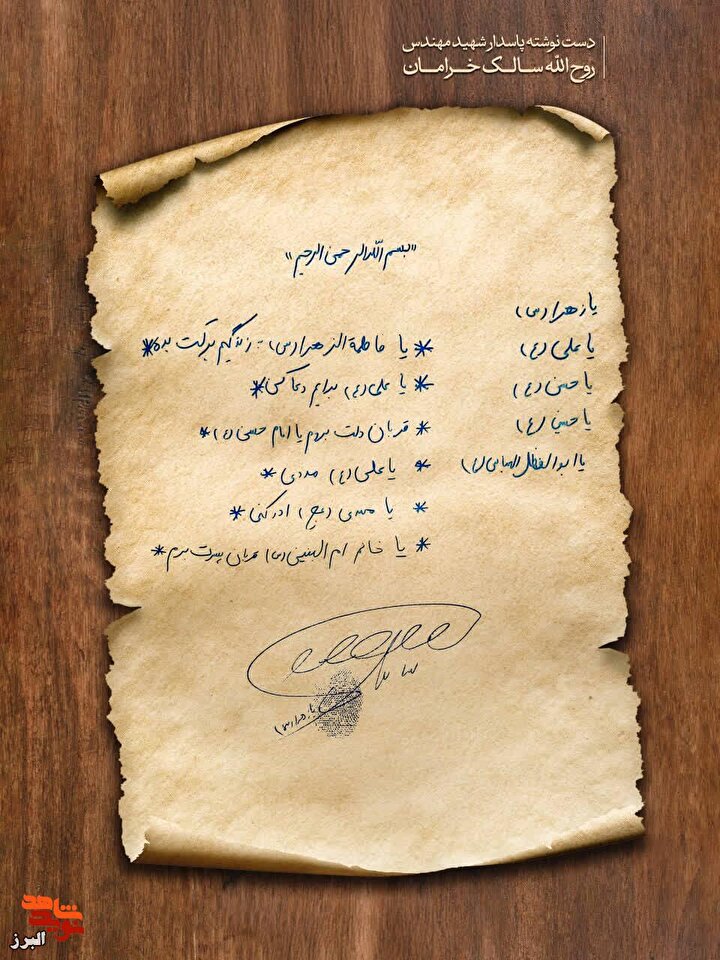 دست نوشته پاسدار شهید مهندس
روح الله سالک خرامان
«بسم الله الرحمن الرحیم»
یا زهرا (س)
یا علی (ع)
یا حسن (ع)
یا حسین (ع)
یا ابوالفضل العباس (ع)
* یا فاطمة الزهرا (س) - زندگیم برکت بده *
* یا علی (ع) برایم دعا کن *
* قربان دلت بروم یا امام حسن (ع) *
* یا علی (ع) مددی *
* یا مهدی (عج) ادرکنی *
* یا خانم ام البنین (س) قربان پسرت برم *
یا زهرا (س)
نوید شاهد
البرز